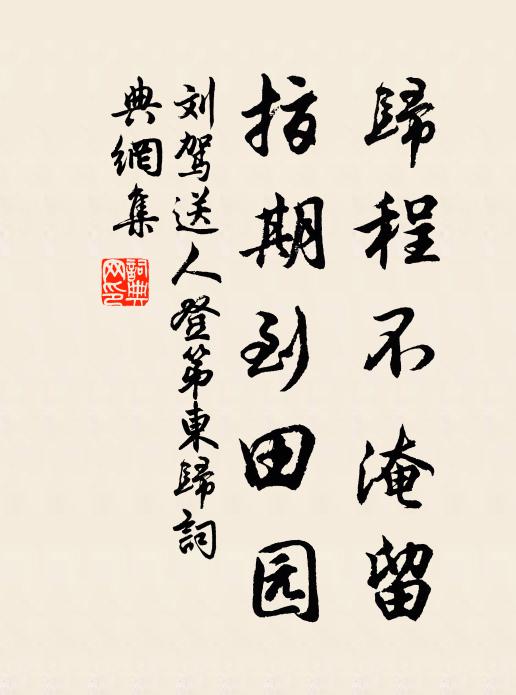 歸程不淹留
指期到田园
刘驾送人登第東歸詞
典網集
詞典网印